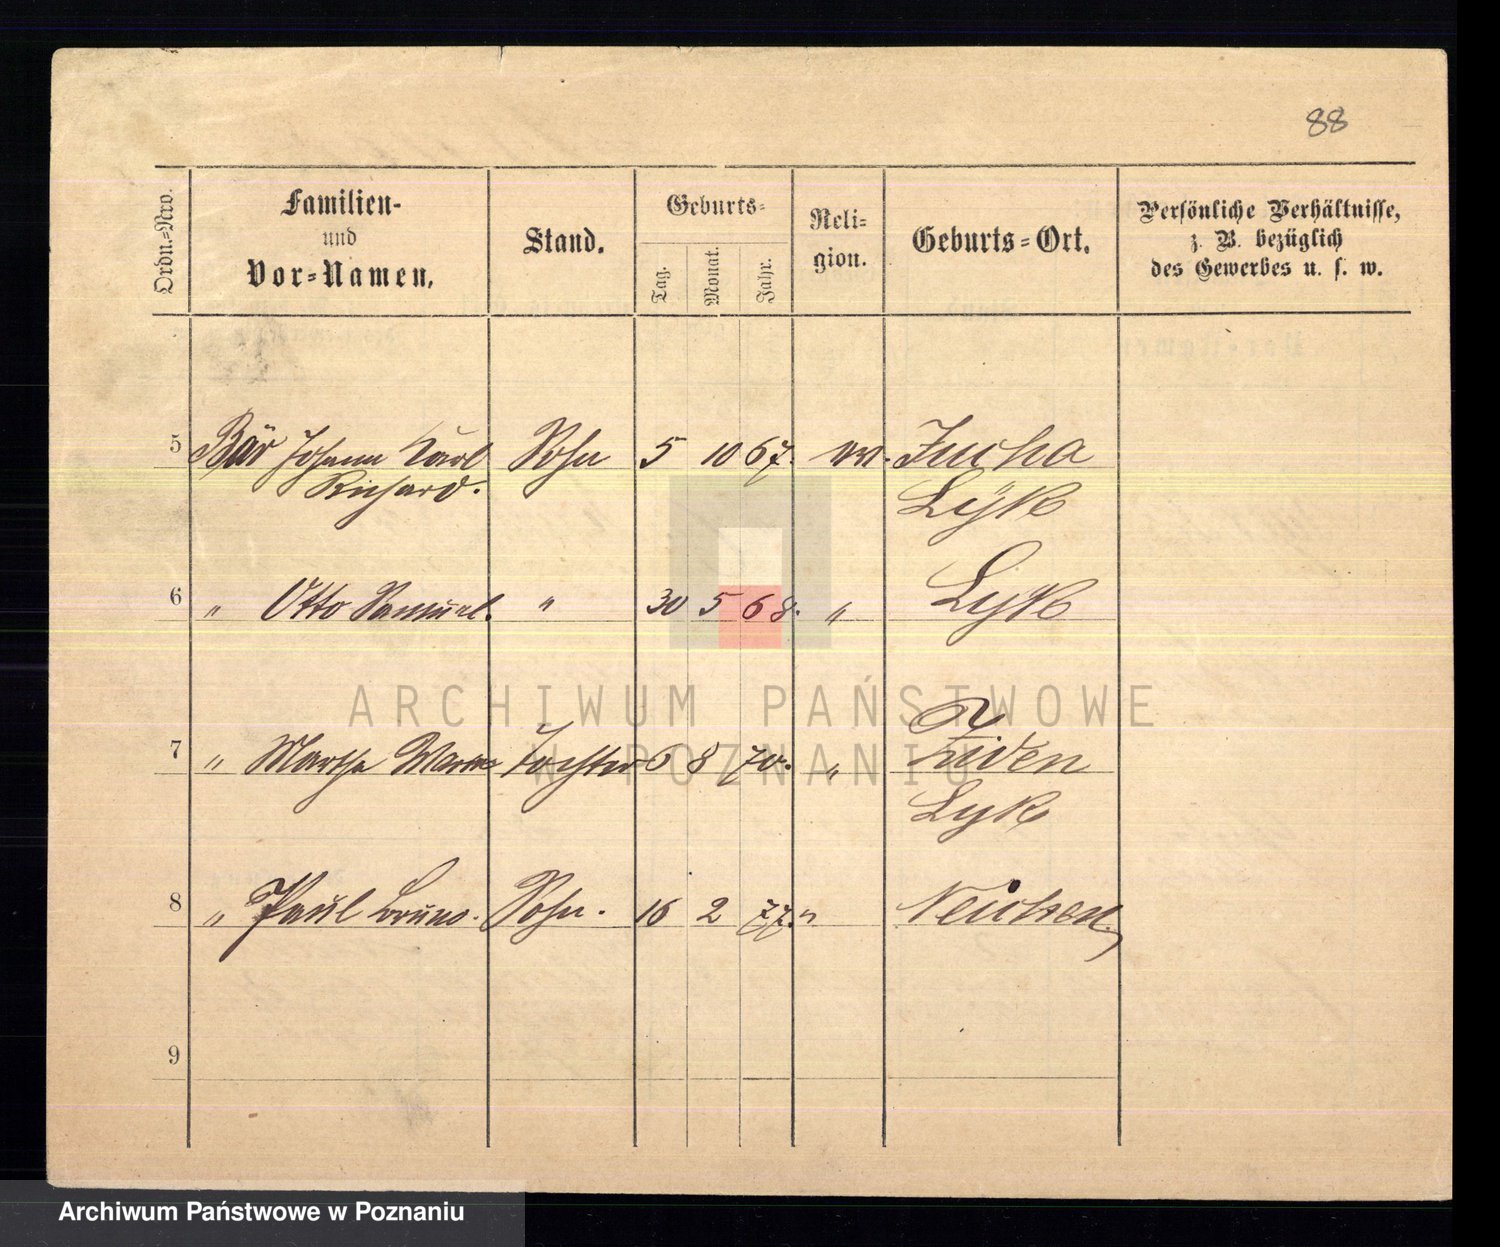 88
Ordn.-Nro.
Familien-
und
Vor-Namen.
Stand.
Geburts-
Tag.
Monat.
Jahr.
Reli-
gion.
Geburts-Ort.
Persönliche Verhältnisse,
z. B. bezüglich
des Gewerbes u. s. w.
5 Bär Johann Karl Sohn 5 10 67. Jucha
Richard. Lÿk
6 " Otto Samuel. " 30 5 68. " Lyk
7 " Martha Tochter 6 8 70. "
Lyk
8 " Paul Bruno. Sohn. 16 2 77. "
9
ARCHIWUM PAŃSTWOWE
W POZNANIU
Archiwum Państwowe w Poznaniu